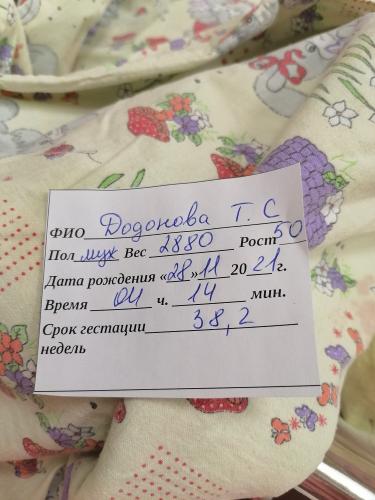 ФИО Додонова Т. С
Пол муж Вес 2880 Рост 50
Дата рождения «28» 11 2021г.
Время 04 ч. 14 мин.
Срок гестации 38,2
недель